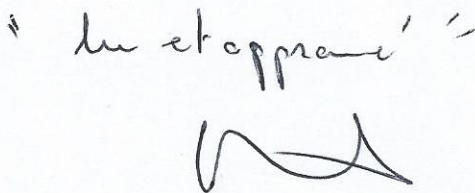 " lu et approuvé "